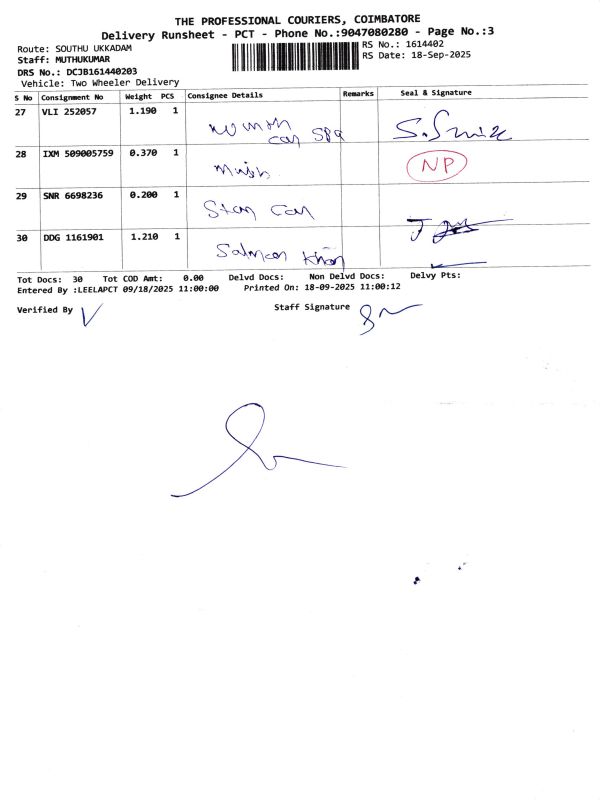 THE PROFESSIONAL COURIERS, COIMBATORE
Delivery Runsheet - PCT - Phone No.:9047080280 - Page No.:3
Route: SOUTHU UKKADAM
RS No.: 1614402
Staff: MUTHUKUMAR
RS Date: 18-Sep-2025
DRS No.: DCJB161440203
Vehicle: Two Wheeler Delivery
S No Consignment No Weight PCS Consignee Details Remarks Seal & Signature
27 VLI 252057 1.190 1
car spa
28 IXM 509005759 0.370 1
NP
29 SNR 6698236 0.200 1
Car
30 DDG 1161901 1.210 1
Salman Khan
Tot Docs: 30 Tot COD Amt: 0.00 Delvd Docs: Non Delvd Docs: Delvy Pts:
Entered By :LEELAPCT 09/18/2025 11:00:00 Printed On: 18-09-2025 11:00:12
Verified By
Staff Signature